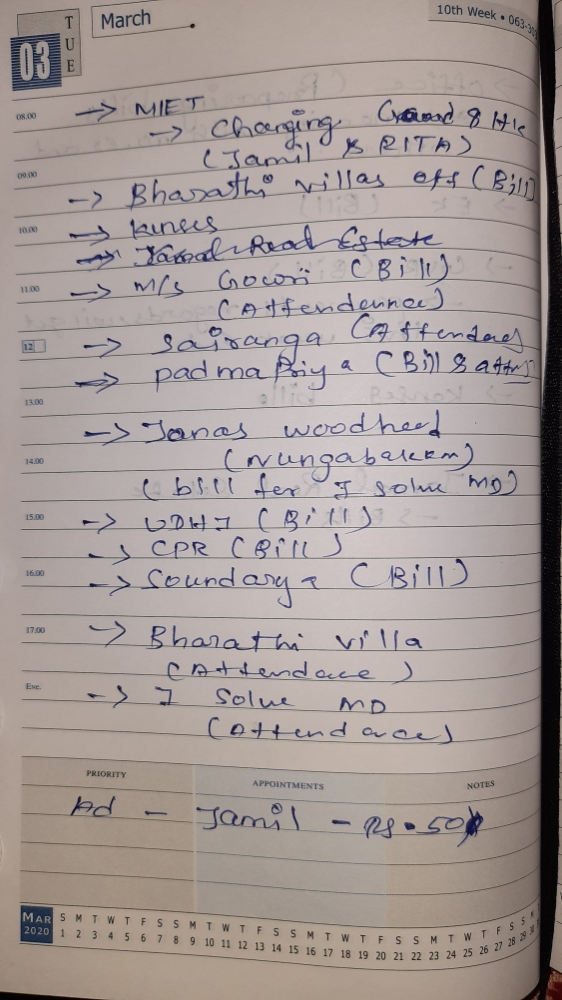 10th Week • 063-303
March
TUE
03
08.00 → MIET
→ Changing Guard & H/c
(Jamil & RITA)
09.00
→ Bharathi villas off (Bill)
10.00 → kinses
→ Jamal Road Estate
11.00 → M/s Gowri (Bill)
(Attendence)
12 → Sairanga (Attendae)
→ padma Priya (Bill & attn)
13.00
→ Janas woodhead
14.00 (Nungabakkem)
(bill for I solve MD)
15.00 → UDHI (Bill)
→ CPR (Bill)
16.00 → Soundarya (Bill)
17.00 → Bharathi villa
(Attendace)
Eve. → I Solve MD
(Attendance)
PRIORITY APPOINTMENTS NOTES
Ad - Jamil - Rs. 50
MAR 2020
S M T W T F S S M T W T F S S M T W T F S S M T W T F S S
1 2 3 4 5 6 7 8 9 10 11 12 13 14 15 16 17 18 19 20 21 22 23 24 25 26 27 28 29